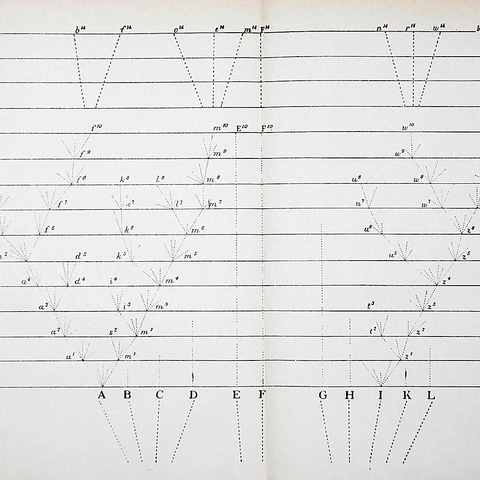 b¹⁴ f¹⁴ o¹⁴ e¹⁴ m¹⁴ F¹⁴ n¹⁴ r¹⁴ w¹⁴
f¹⁰ m¹⁰ E¹⁰ F¹⁰ w¹⁰
f⁹ m⁹ w⁹
f⁸ k⁸ l⁸ m⁸ u⁸ w⁸
f⁷ l⁷ m⁷ u⁷ w⁷
f⁶ k⁶ m⁶ u⁶ z⁶
a⁵ d⁵ k⁵ m⁵ u⁵ z⁵
a⁴ d⁴ i⁴ m⁴ z⁴
a³ i³ m³ t³ z³
a² s² m² t² z²
a¹ m¹ z¹
A B C D E F G H I K L